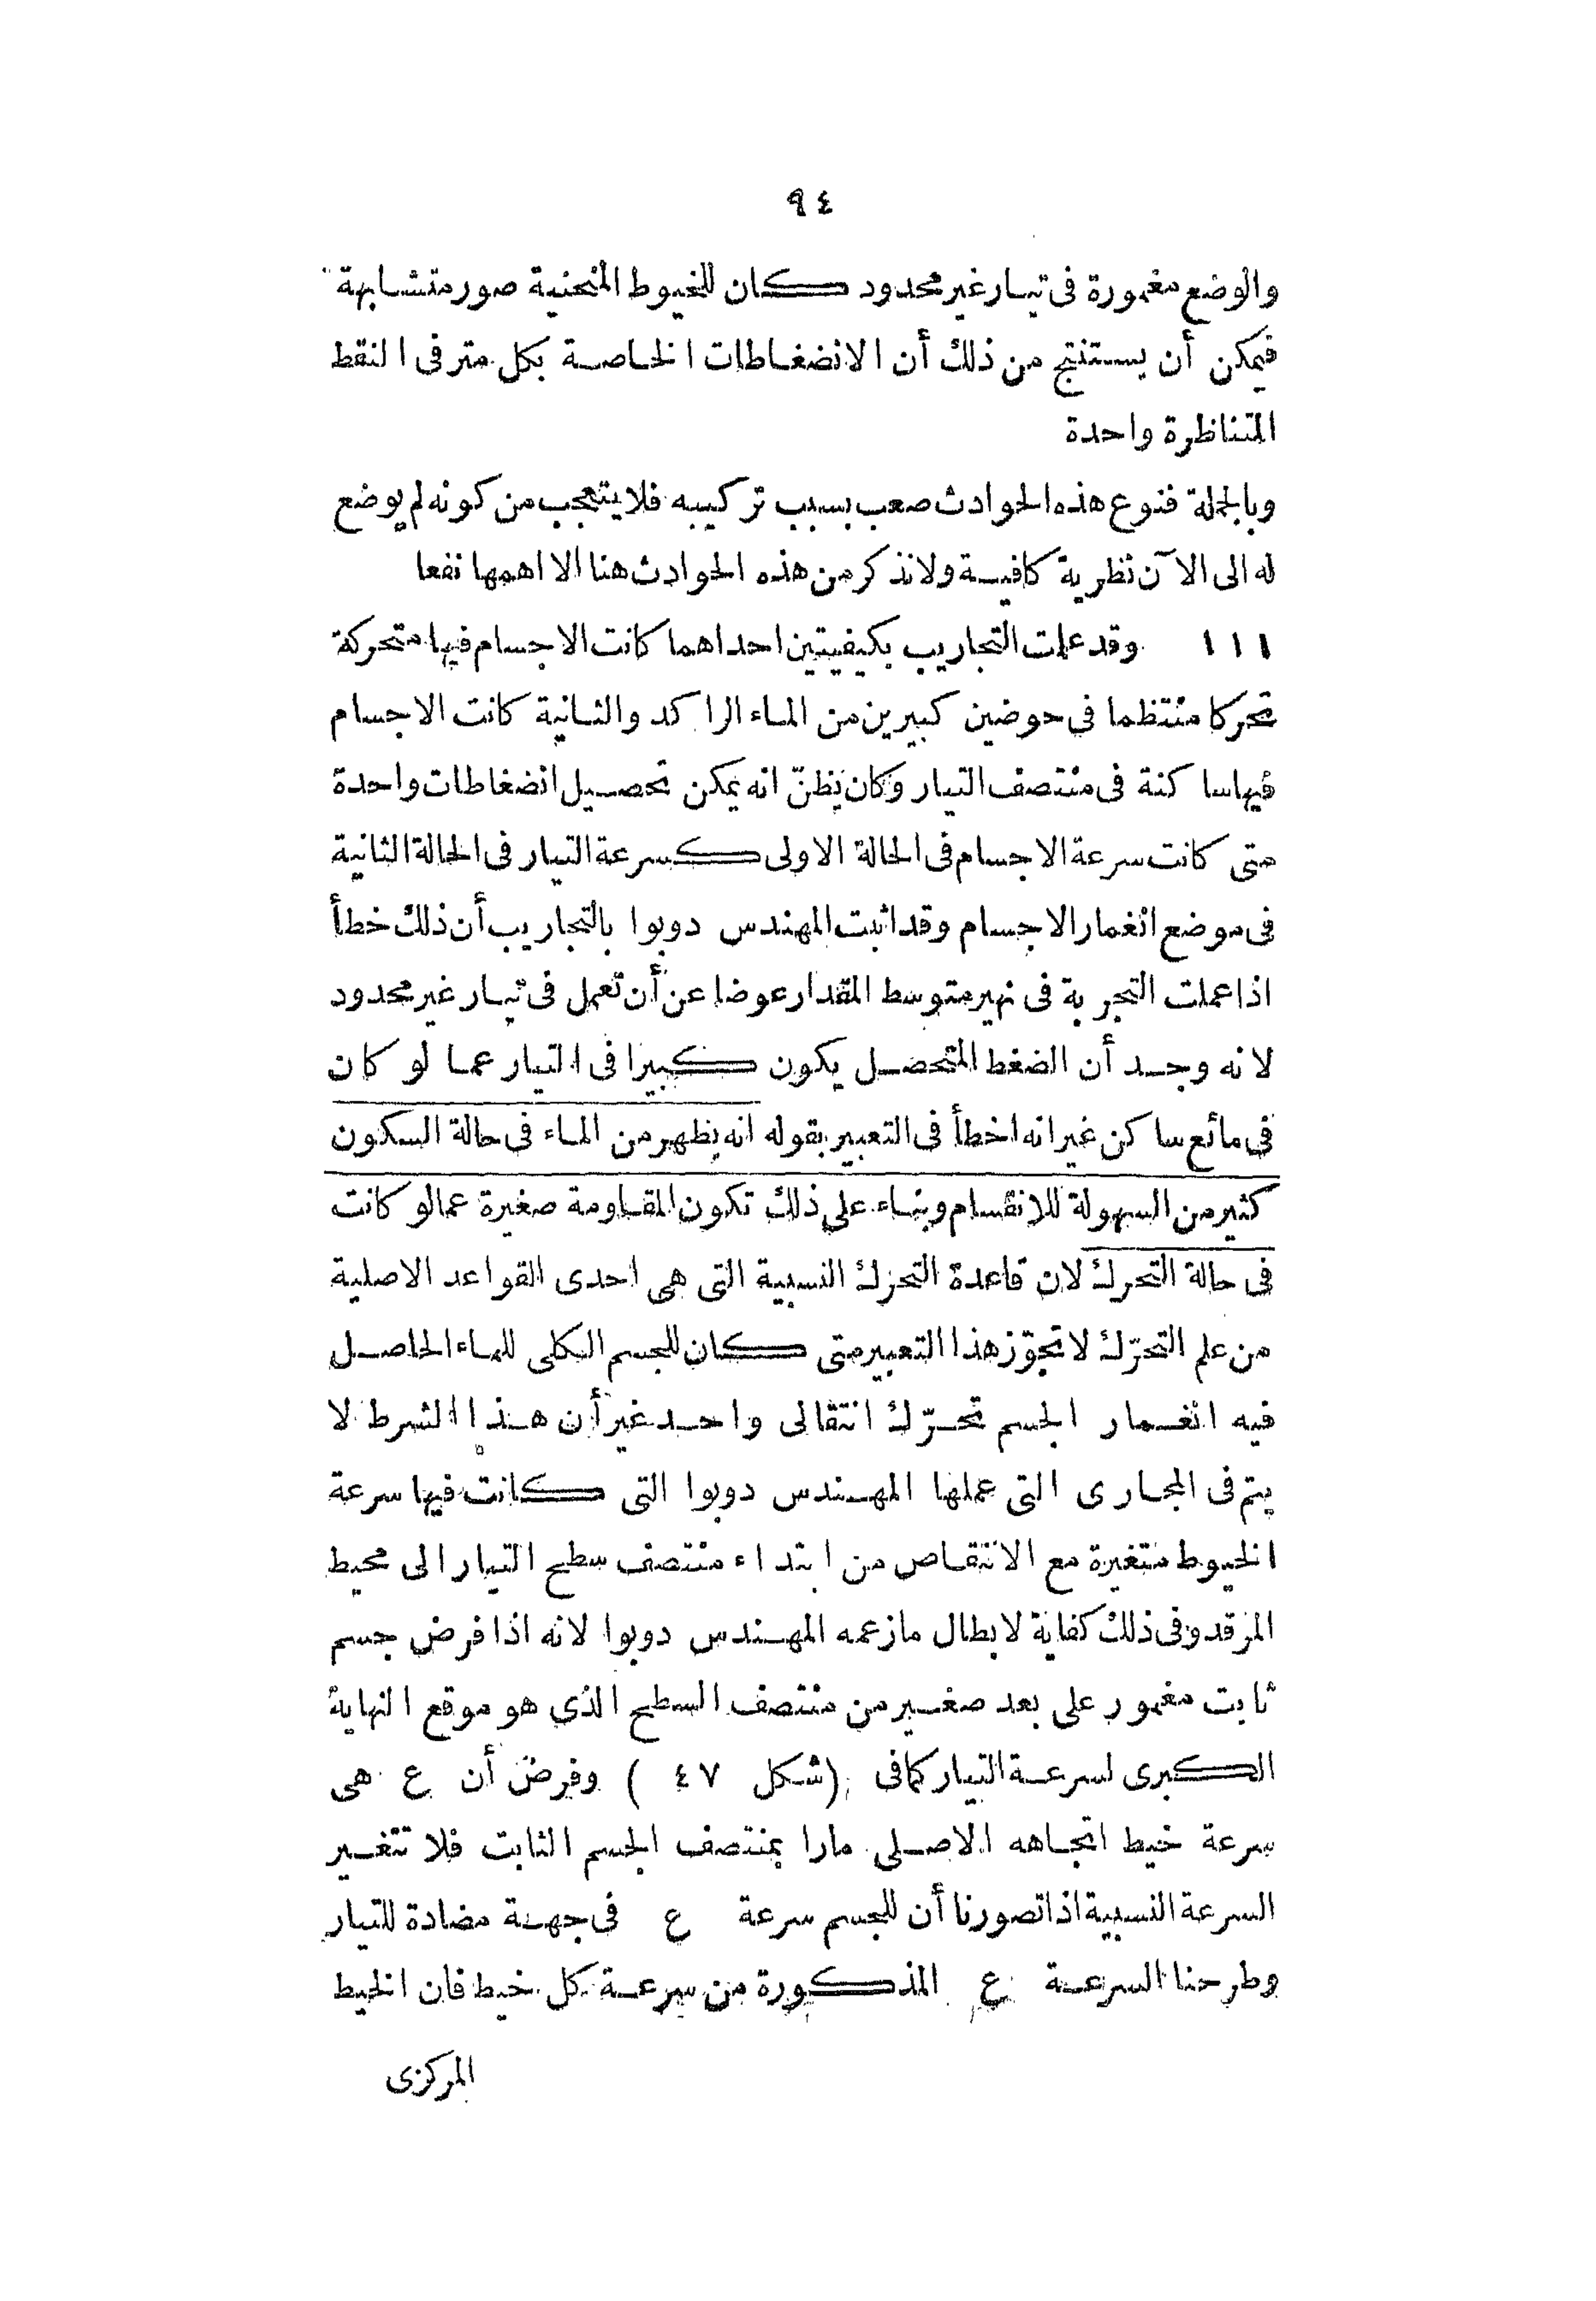 ٩٤
والوضع مغمورة فى تيار غير محدود كان للخيوط المنحنية صور متشابهة
فيمكن أن يستنتج من ذلك أن الانضغاطات الخاصة بكل متر فى النقط
المتناظرة واحدة
وبالجملة فنوع هذه الحوادث صعب بسبب تركيبه فلا يتعجب من كونه لم يوضع
له الى الآن نظرية كافية ولا نذكر من هذه الحوادث هنا الا اهمها نفعا
١١١ وقد عملت التجاريب بكيفيتين احداهما كانت الاجسام فيها متحركة
تحركا منتظما فى حوضين كبيرين من الماء الراكد والثانية كانت الاجسام
فيها ساكنة فى منتصف التيار وكان يظنّ انه يمكن تحصيل انضغاطات واحدة
متى كانت سرعة الاجسام فى الحالة الاولى كسرعة التيار فى الحالة الثانية
فى موضع انغمار الاجسام وقد اثبت المهندس دوبوا بالتجاريب أن ذلك خطأ
اذا عملت التجربة فى نهير متوسط المقدار عوضا عن أن تعمل فى تيار غير محدود
لانه وجد أن الضغط المتحصل يكون كبيرا فى التيار عما لو كان
فى مائع ساكن غير انه اخطأ فى التعبير بقوله انه يظهر من الماء فى حالة السكون
كثير من السهولة للانقسام وبناء على ذلك تكون المقاومة صغيرة عما لو كانت
فى حالة التحرك لان قاعدة التحرك النسبية التى هى احدى القواعد الاصلية
من علم التحرّك لا تجوّز هذا التعبير متى كان للجسم الكلى للماء الحاصل
فيه انغمار الجسم تحرّك انتقالى واحد غير أن هذا الشرط لا
يتم فى المجارى التى عملها المهندس دوبوا التى كانت فيها سرعة
الخيوط متغيرة مع الانتقاص من ابتداء منتصف سطح التيار الى محيط
المرقد وفى ذلك كفاية لابطال ما زعمه المهندس دوبوا لانه اذا فرض جسم
ثابت مغمور على بعد صغير من منتصف السطح الذى هو موقع النهاية
الكبرى لسرعة التيار كما فى (شكل ٤٧) وفرض أن ع هى
سرعة خيط اتجاهه الاصلى مارا بمنتصف الجسم الثابت فلا تتغير
السرعة النسبية اذا تصورنا أن للجسم سرعة ع فى جهة مضادة للتيار
وطرحنا السرعة ع المذكورة من سرعة كل خيط فان الخيط
المركزى